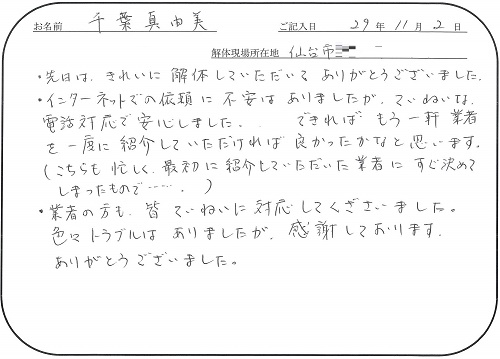 お名前 千葉真由美 ご記入日 29年11月2日
解体現場所在地 仙台市
・先日は、きれいに解体していただいてありがとうございました。
・インターネットでの依頼に不安はありましたが、ていねいな、
電話対応で安心しました。 できればもう一軒業者
を一度に紹介していただければ良かったかなと思います。
(こちらも忙しく、最初に紹介していただいた業者にすぐ決めて
しまったもので……。)
・業者の方も、皆ていねいに対応してくださいました。
色々トラブルはありましたが、感謝しております。
ありがとうございました。